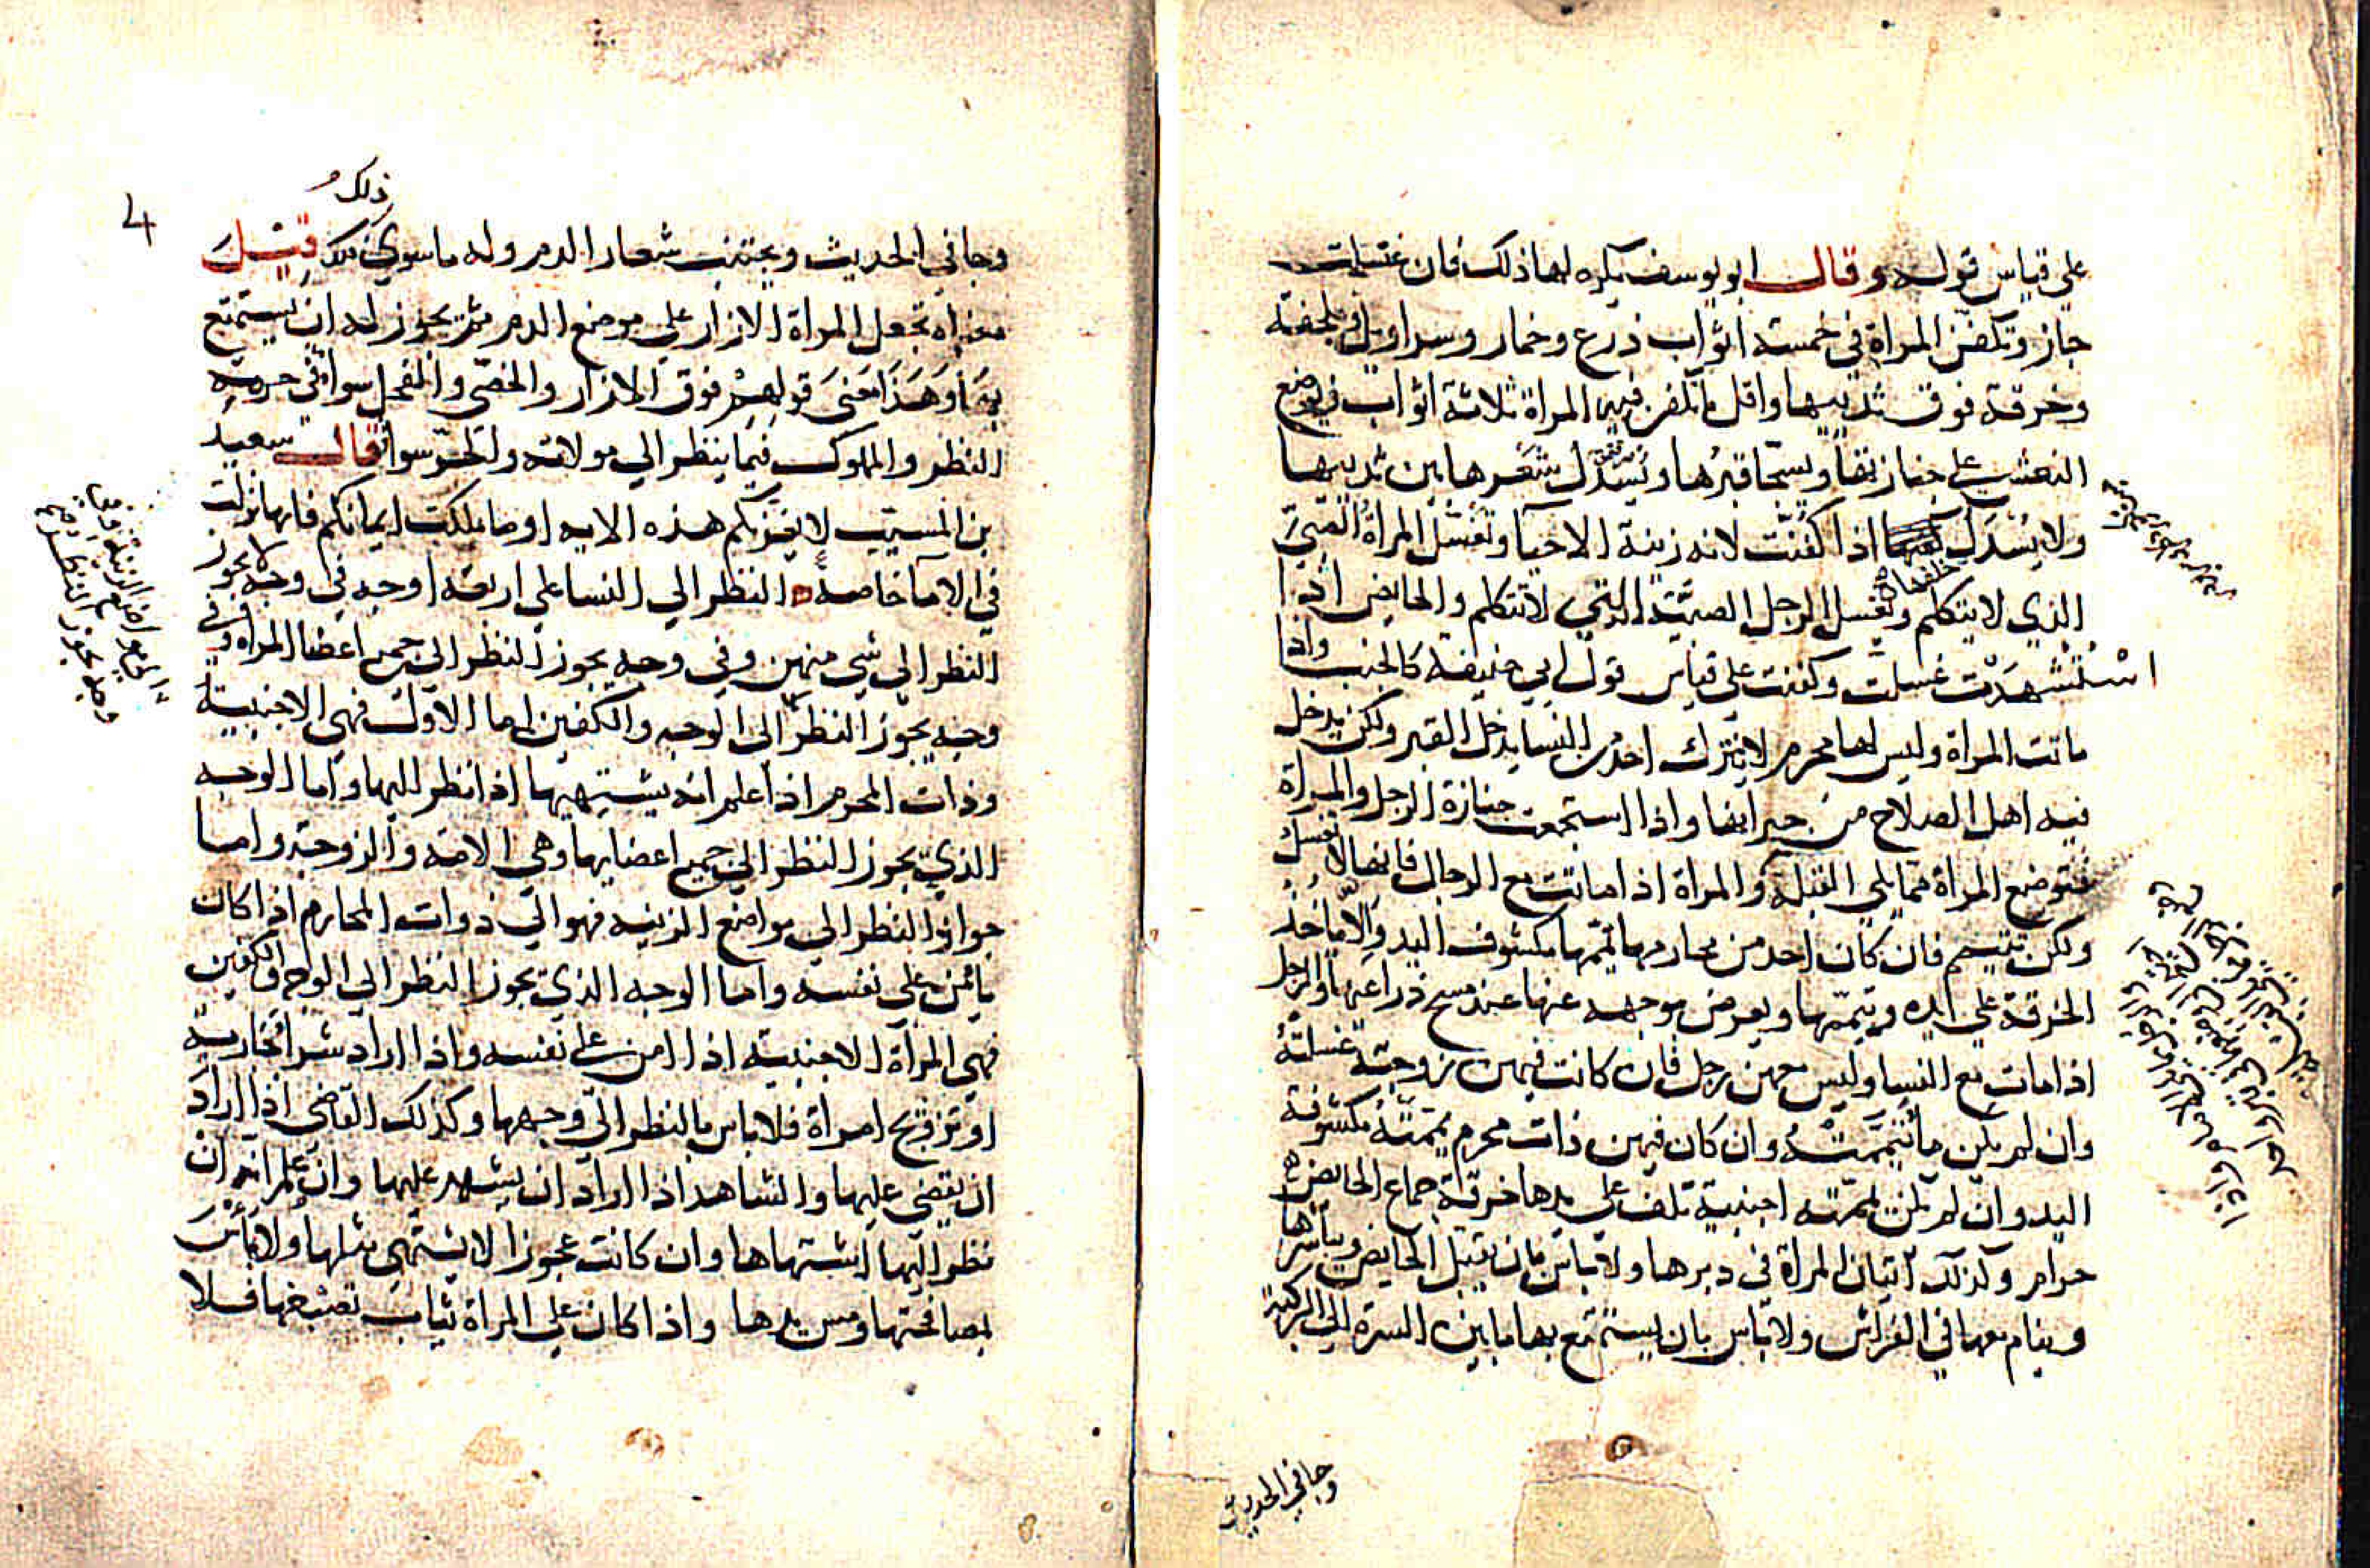 على قياس قوله وقال ابو يوسف يكره لها ذلك فان غتسلت
جاز وتكفن المراة في خمسة اثواب ذرع وخمار وسراويل وملحفة
وخرقة فوق ثدييها واقل ما تكفن فيه المراة ثلاثة اثواب ويوضع
النعش على جنازتها ويسجا قبرها ويسدل شعرها بين ثدييها
ولا يسدل خلفها اذا كفنت لانه زينة الاحيا وتغسل المراة الصبي
الذي لا يتكلم ويغسل الرجل الصبية التي لا تتكلم والحايض اذا
استشهدت غسلت وكفنت على قياس قول ابي حنيفة كالجنب واذا
ماتت المراة وليس لها محرم لا يترك احد من النسا يدخل القبر ولكن يدخل
فيه اهل الصلاح من جيرانها واذا استجمعت جنازة الرجل والمراة
فتوضع المراة مما يلي القبلة والمراة اذا ماتت مع الرجال فانها لا تغسل
ولكن تتيمم فان كان احد من محارمها يممها مكشوف اليد والا ياخذ
الخرقة على ايده وييممها ويعرض بوجهه عنها عند مسح ذراعيها والرجل
اذا مات مع النسا وليس معهن رجل فان كانت فيهن زوجته غسلته
وان لم يكن ماتيممته وان كان فيهن ذات محرم يممته مكشوفة
اليد وان لم يكن يممته اجنبية تلف على يدها خرقة جماع الحايض
حرام وكذلك اتيان المراة في دبرها ولا باس بان يقبل الحايض ويباشرها
وينام معها في الفراش ولا باس بان يستمتع بها ما بين السرة الى الركبة
وجا في الحديث
4
ذلك
وجا في الحديث ويجتنب شعار الدم وله ما سوى ذلك قيل
معناه تجعل المراة الازار على موضع الدم ثم يجوز له ان يستمتع
بها وهذا معنى قولهم فوق الازار والخصي والفحل سوا في حرمة
النظر والملوك فيما ينظر الى مولاته والحر سوا قال سعيد
بن المسيب لا يغرنكم هذه الايه او ما ملكت ايمانكم فانها نزلت
في الاما خاصة النظر الى النسا على اربعة اوجه في وجه لا يجوز
النظر الى شي منهن وفي وجه يجوز النظر الى جميع اعضا المراة وفي
وجه يجوز النظر الى الوجه والكفين اما الاول فهي الاجنبية
وذات المحرم اذا علم انه يشتهيها اذا نظر اليها واما الوجه
الذي يجوز النظر الى جميع اعضايها وهي الامة والزوجة واما
جواز النظر الى مواضع الزينه فهو الى ذوات المحارم اذا كان
يامن على نفسه واما الوجه الذي يجوز النظر الى الوجه والكفين
فهي المراة الاجنبية اذا امن على نفسه واذا اراد شرا جارية
او تزويج امراة فلا باس بالنظر الى وجهها وكذلك القاضي اذا اراد
ان يقضي عليها والشاهد اذا اراد ان يشهد عليها وان علم انه ان
نظر اليها اشتهاها وان كانت عجوزا لا يشتهى مثلها ولا باس
بمصافحتها ومس يدها واذا كان على المراة ثياب تصبغها فلا
وجه يجوز النظر